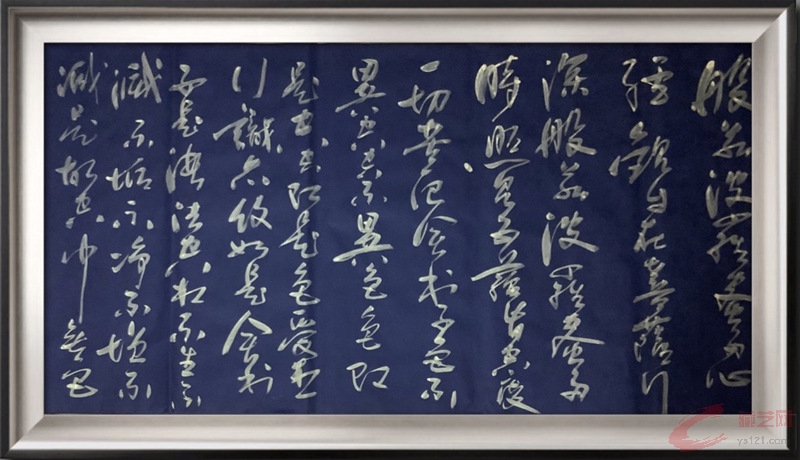 般若波羅蜜多心
經觀自在菩薩行
深般若波羅蜜多
時照見五蘊皆空度
一切苦厄舍利子色不
異空空不異色色即
是空空即是色受想
行識亦復如是舍利
子是諸法空相不生不
滅不垢不净不增不
減是故空中無色
ys121.com